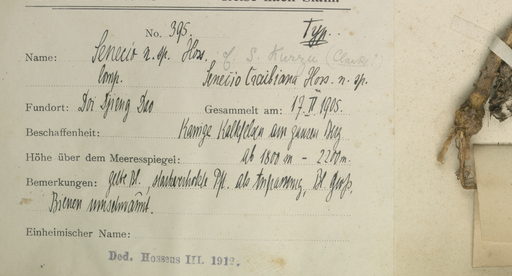 Reise nach Siam.
No. 395. Typ.
Name: Senecio n. sp. Hoss. cf. S. Kurzii (Clarke
Comp. Senecio Craibiana Hoss. n. sp.
Fundort: Doi Djieng Dao Gesammelt am: 17. II 1905.
Beschaffenheit: Kantige Kalkfelsen am ganzen Berg
Höhe über dem Meeresspiegel: ab 1800 m – 2200 m.
Bemerkungen: gelbe Bl., starkverholzte Pfl. als Anpassung, Bl. groß,
Bienen umschwärmt.
Einheimischer Name:
Ded. Hosseus III. 1912.